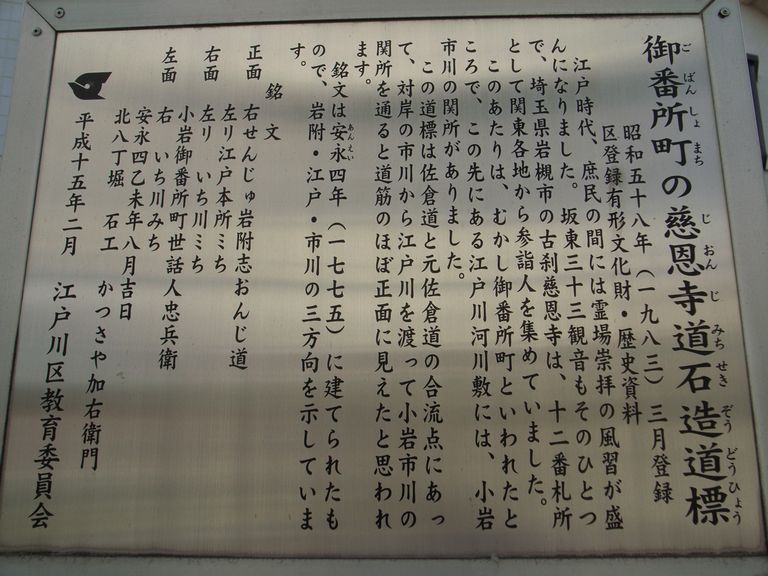 御番所町の慈恩寺道石造道標
ごばんしょまち じおんじみちせきぞうどうひょう
昭和五十八年(一九八三)三月登録
区登録有形文化財・歴史資料
江戸時代、庶民の間には霊場崇拝の風習が盛
んになりました。坂東三十三観音もそのひとつ
で、埼玉県岩槻市の古刹慈恩寺は、十二番札所
として関東各地から参詣人を集めていました。
このあたりは、むかし御番所町といわれたと
ころで、この先にある江戸川河川敷には、小岩
市川の関所がありました。
この道標は佐倉道と元佐倉道の合流点にあっ
て、対岸の市川から江戸川を渡って小岩市川の
関所を通ると道筋のほぼ正面に見えたと思われ
ます。
銘文は安永四年(一七七五)に建てられたも
あんえい
ので、岩附・江戸・市川の三方向を示していま
す。
銘文
正面 右せんじゅ岩附志おんじ道
左リ江戸本所ミち
右面 左リ いち川ミち
小岩御番所町世話人忠兵衛
左面 右 いち川みち
安永四乙未年八月吉日
北八丁堀 石工 かつさや加右衛門
平成十五年二月 江戸川区教育委員会